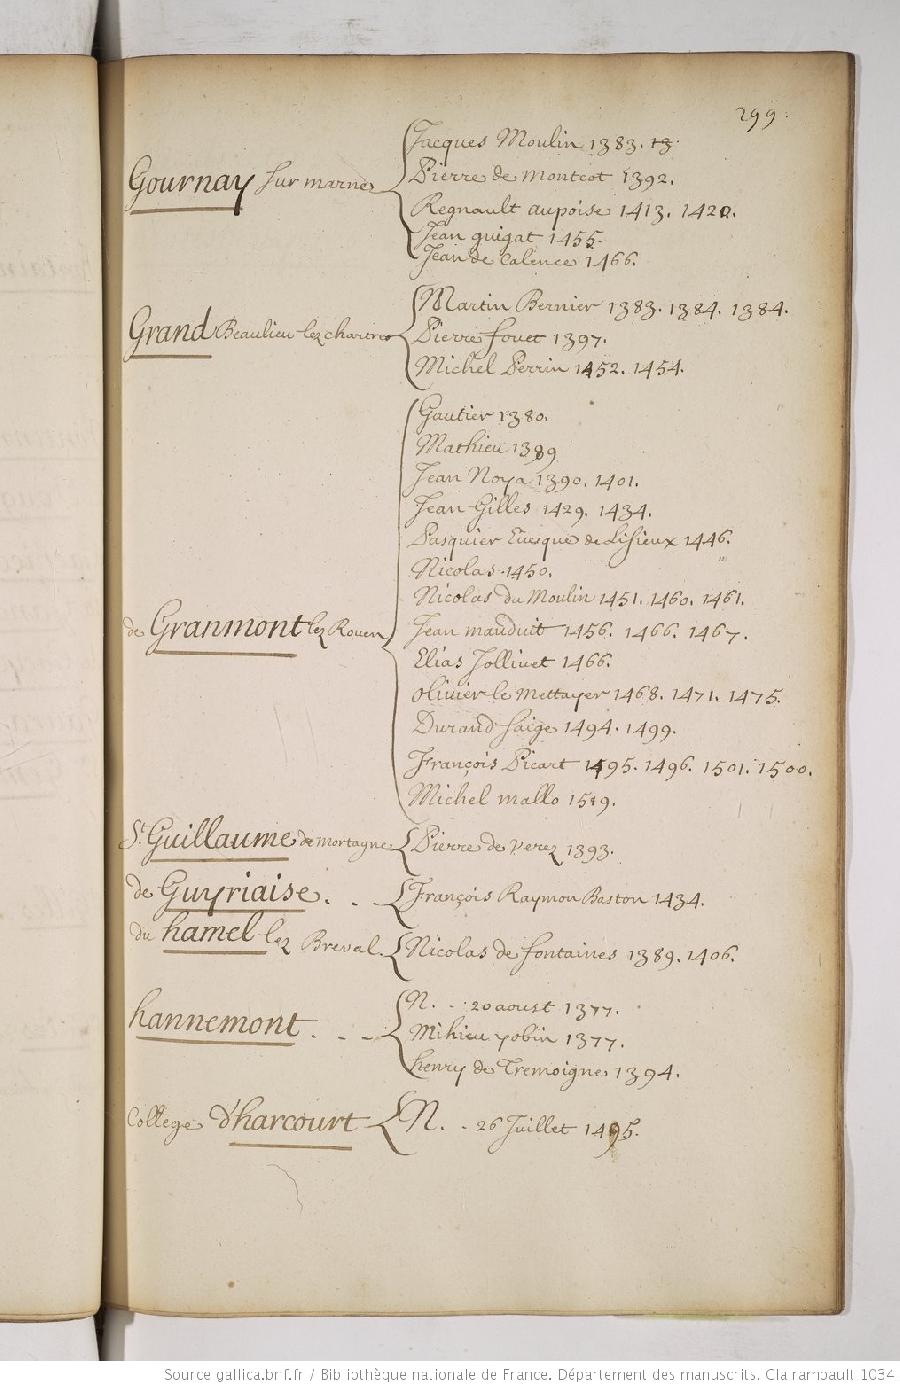 299.
Gournay sur marne
Jacques Moulin 1383. 13.
Pierre de Montcot 1392.
Regnault aupoise 1413. 1420.
Jean guigat 1455.
Jean de Calence 1466.
Grand Beaulieu lez chartres
Martin Bernier 1383. 1384. 1384.
Pierre fouet 1397.
Michel Perrin 1452. 1454.
de Granmont lez Rouen
Gautier 1380.
Mathieu 1389
Jean Noya 1390. 1401.
Jean Gilles 1429. 1434.
Pasquier Euesque de Lisieux 1446.
Nicolas 1450.
Nicolas du Moulin 1451. 1460. 1461.
Jean mauduit 1456. 1466. 1467.
Elias Jollivet 1466.
olivier le Mettayer 1468. 1471. 1475.
Durand Saige 1494. 1499.
François Picart 1495. 1496. 1501. 1500.
Michel mallo 1519.
St. Guillaume de mortagne
Pierre de Verez 1393.
de Guyriaise
François Raymon Baston 1434.
du hamel lez Breval.
Nicolas de fontaines 1389. 1406.
hannemont
N. . . 20 aoust 1377.
Mihieu yobin 1377.
henry de Tremoigne 1394.
College d'harcourt
N. . 26 Juillet 1495.
Source gallica.bnf.fr / Bibliothèque nationale de France. Département des manuscrits. Clairambault 1034